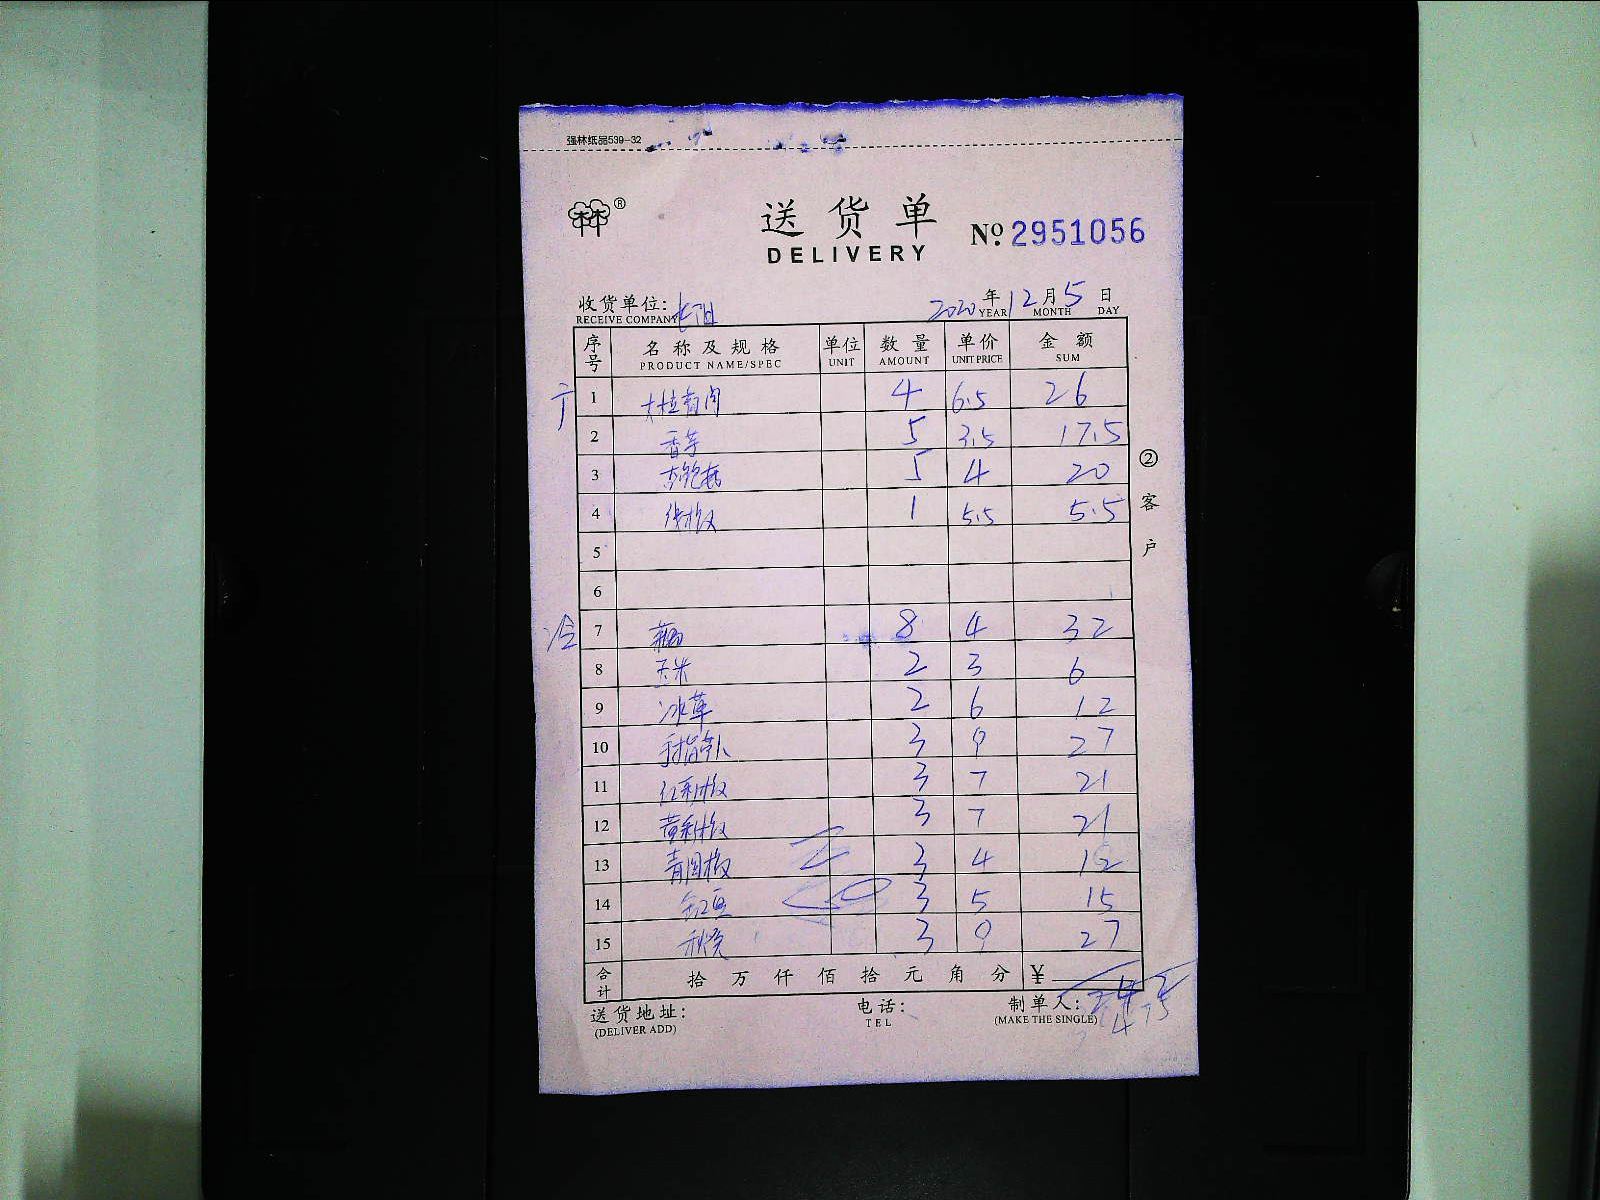 强林纸品539-32
®
送货单
DELIVERY
№ 2951056
收货单位:
RECEIVE COMPANY
2020年12月5日
YEAR MONTH DAY
序号 名称及规格 单位 数量 单价 金额
PRODUCT NAME/SPEC UNIT AMOUNT UNIT PRICE SUM
1 4 6.5 26
2 香芋 5 3.5 17.5
3 杏鲍菇 5 4 20
4 线椒 1 5.5 5.5
5
6
冷 7 藕 8 4 32
8 玉米 2 3 6
9 冰草 2 6 12
10 3 9 27
11 红彩椒 3 7 21
12 黄彩椒 3 7 21
13 青圆椒 3 4 12
14 3 5 15
15 秋葵 3 9 27
合计 拾万仟佰拾元角分 ¥
②客户
送货地址:
(DELIVER ADD)
电话:
TEL
制单人:
(MAKE THE SINGLE)